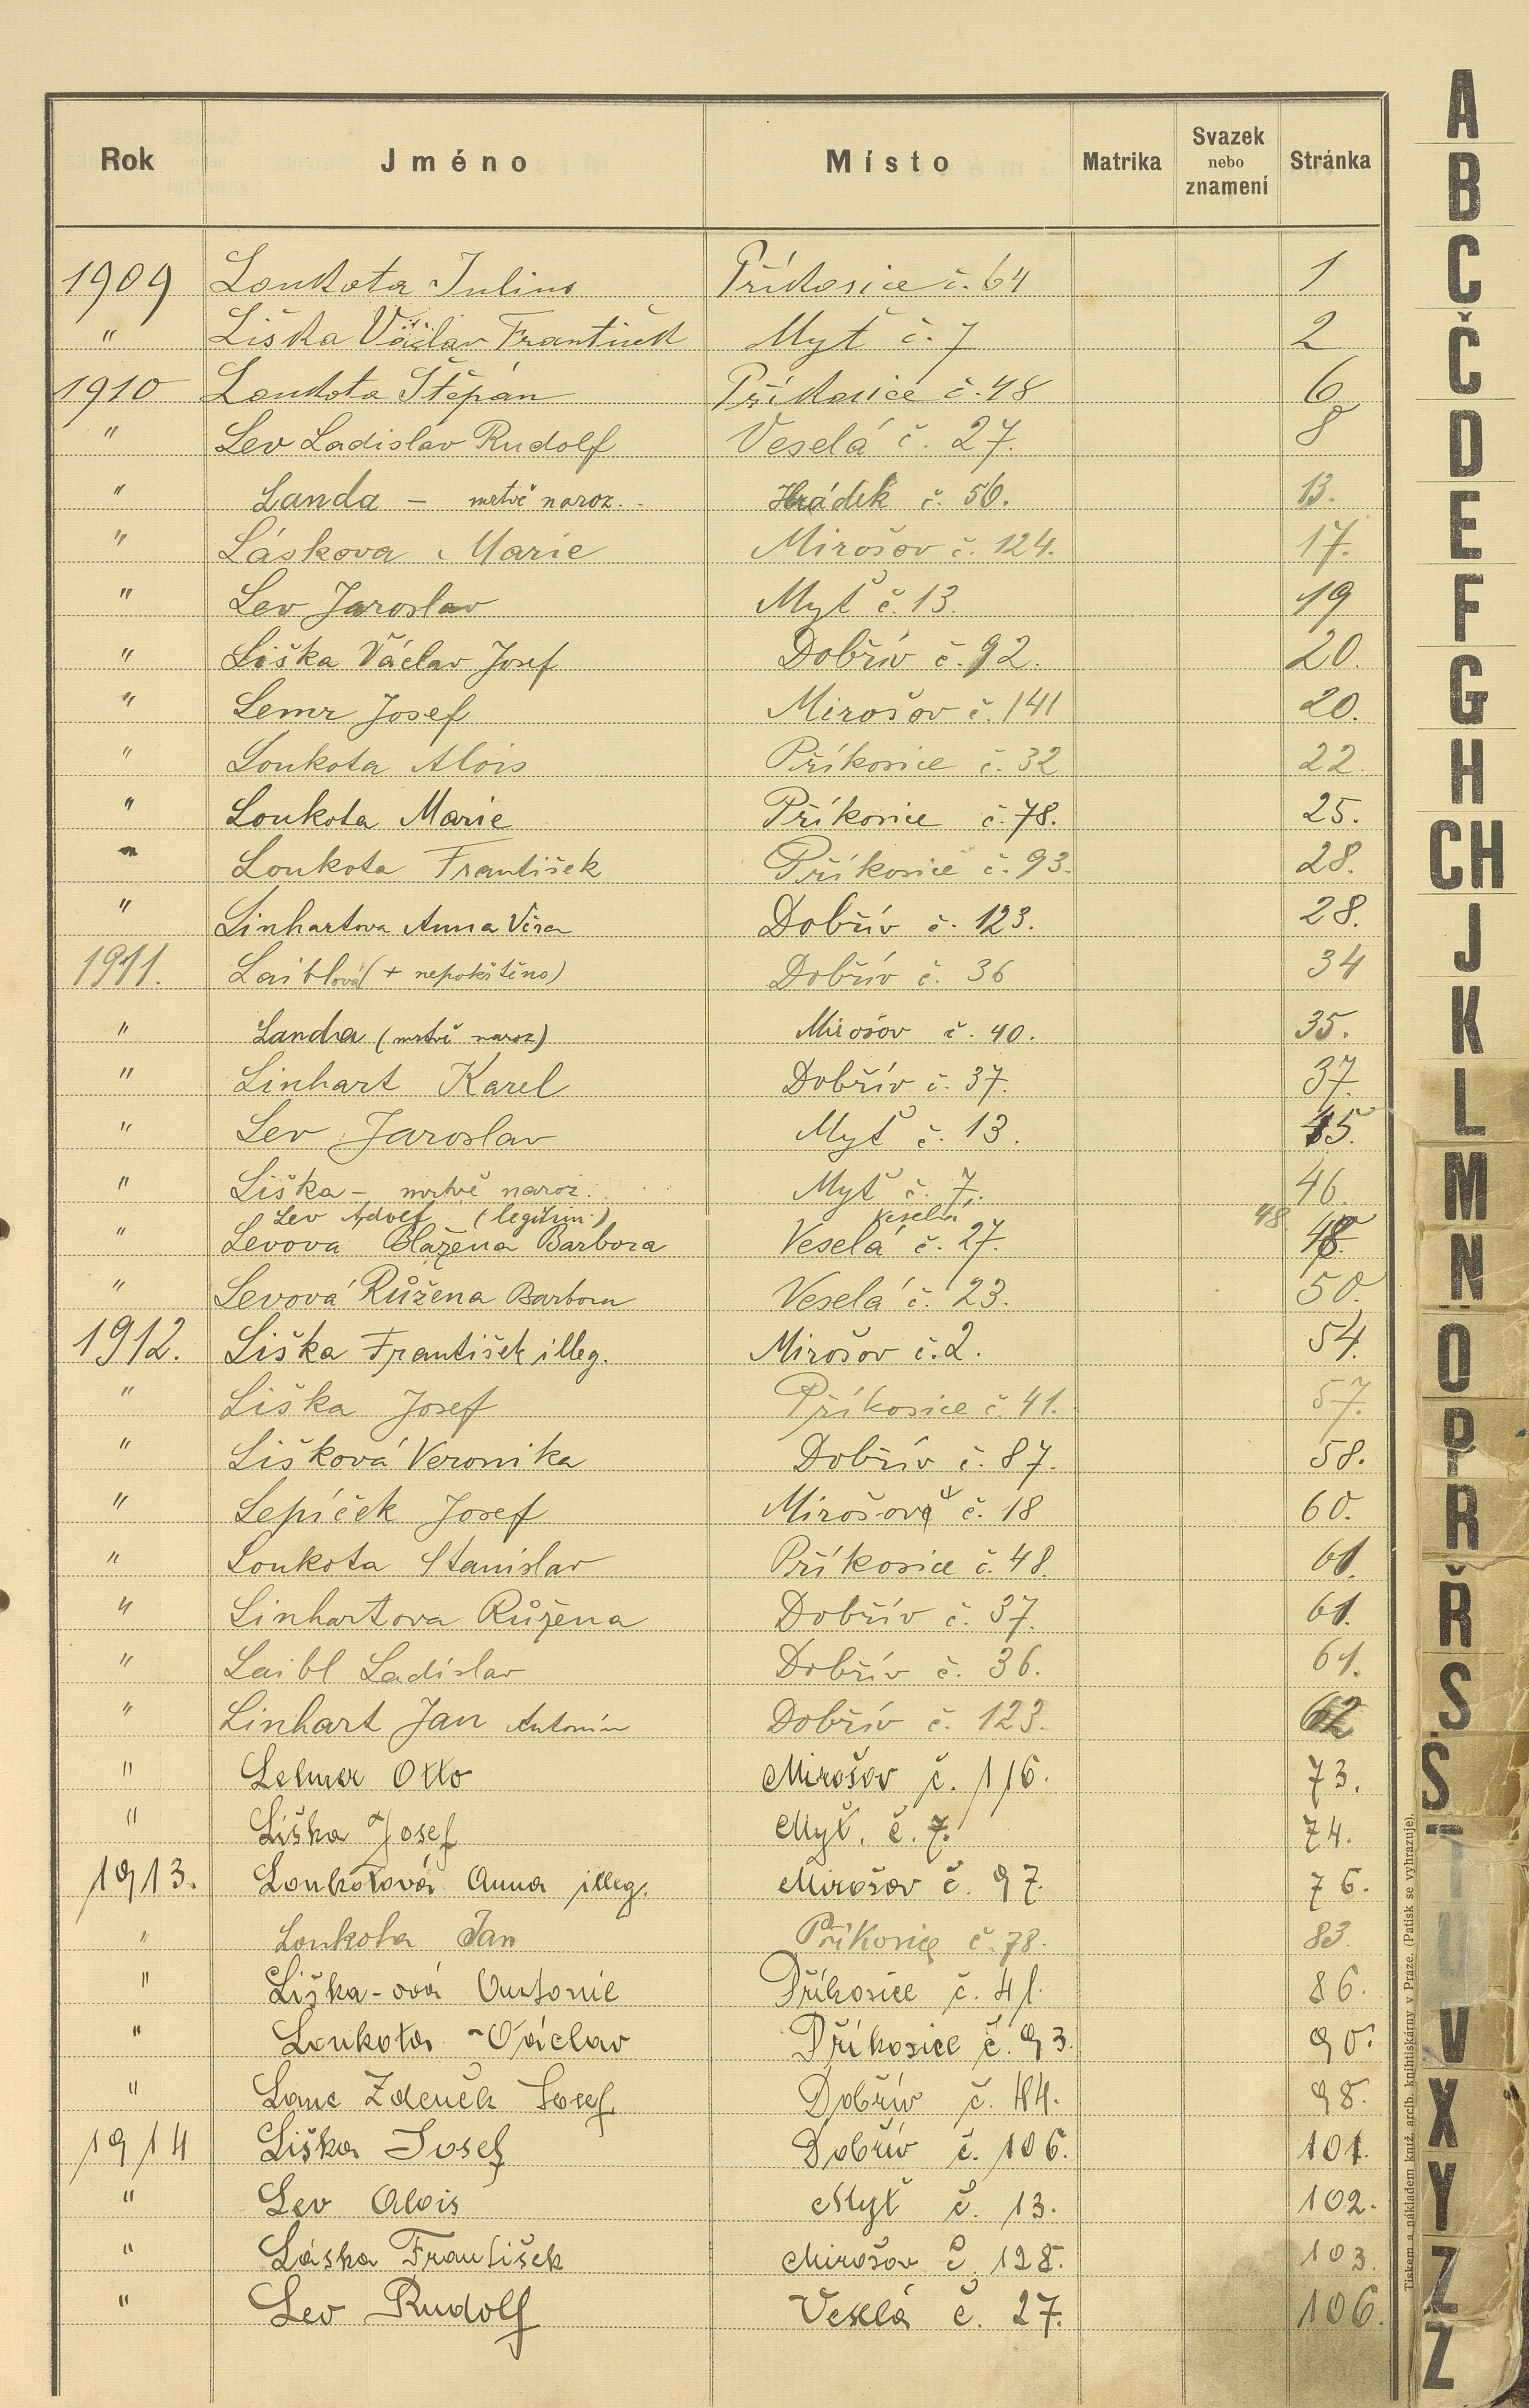 Rok Jméno Místo Matrika Svazek nebo znamení Stránka
1909 Loukota Julius Příkosice č. 64 1
" Liška Václav František Myť č. 7 2
1910 Loukota Štěpán Příkosice č. 48 6
" Lev Ladislav Rudolf Veselá č. 27. 8
" Landa - mrtvě naroz. Hrádek č. 56. 13.
" Láskova Marie Mirošov č. 124. 17.
" Lev Jaroslav Myť č. 13. 19
" Liška Václav Josef Dobřív č. 92. 20.
" Lemr Josef Mirošov č. 141 20.
" Loukota Alois Příkosice č. 32 22.
" Loukota Marie Příkosice č. 78. 25.
" Loukota František Příkosice č. 93. 28.
" Linhartova Anna Věra Dobřív č. 123. 28.
1911. Laiblová (+ nepokřtěno) Dobřív č. 36 34
" Landa (mrtvě naroz) Mirošov č. 40. 35.
" Linhart Karel Dobřív č. 37. 37.
" Lev Jaroslav Myť č. 13. 45.
" Liška - mrtvě naroz. Myť č. 7. 46.
Lev Adolf (legitim.) Veselá 48
" Levova Blažena Barbora Veselá č. 27. 48.
" Levová Růžena Barbora Veselá č. 23. 50.
1912. Liška František illeg. Mirošov č. 2. 54.
" Liška Josef Příkosice č. 41. 57.
" Lišková Veronika Dobřív č. 87. 58.
" Lepíček Josef Mirošov č. 18 60.
" Loukota Stanislav Příkosice č. 48. 61.
" Linhartova Růžena Dobřív č. 37. 61.
" Laibl Ladislav Dobřív č. 36. 61.
" Linhart Jan Antonín Dobřív č. 123. 62
" Otto Mirošov č. 116. 73.
" Liška Josef Myť. č. 7. 74.
1913. Loukotová Anna illeg. Mirošov č. 97. 76.
" Loukota Jan Příkosice č. 78. 83.
" Liška-ová Antonie Příkosice č. 41. 86.
" Loukota Václav Příkosice č. 93. 90.
" Zdeněk Josef Dobřív č. 44. 98.
1914 Liška Josef Dobřív č. 106. 101.
" Lev Alois Myť č. 13. 102.
" Láska František Mirošov č. 128. 103.
" Lev Rudolf Veselá č. 27. 106.
Tiskem a nákladem kníž. arcib. knihtiskárny v Praze. (Patisk se vyhrazuje).
A
B
C
Č
D
E
F
G
H
CH
J
K
L
M
N
O
P
R
Ř
S
Š
T
U
V
X
Y
Z
Z